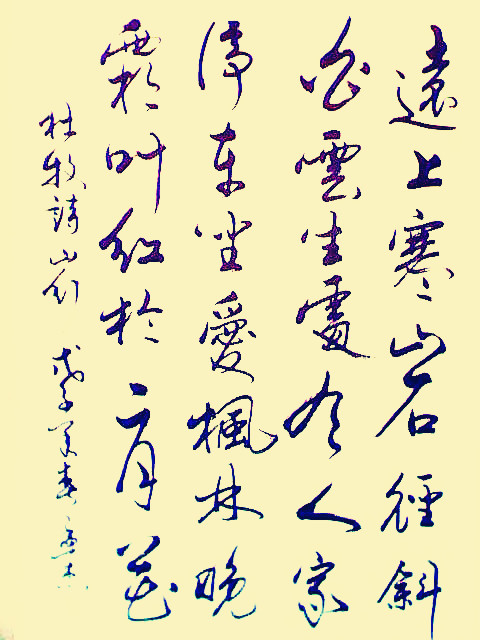 遠上寒山石徑斜
白雲生處有人家
停車坐愛楓林晚
霜叶紅於二月花
杜牧詩山行 戊子 春